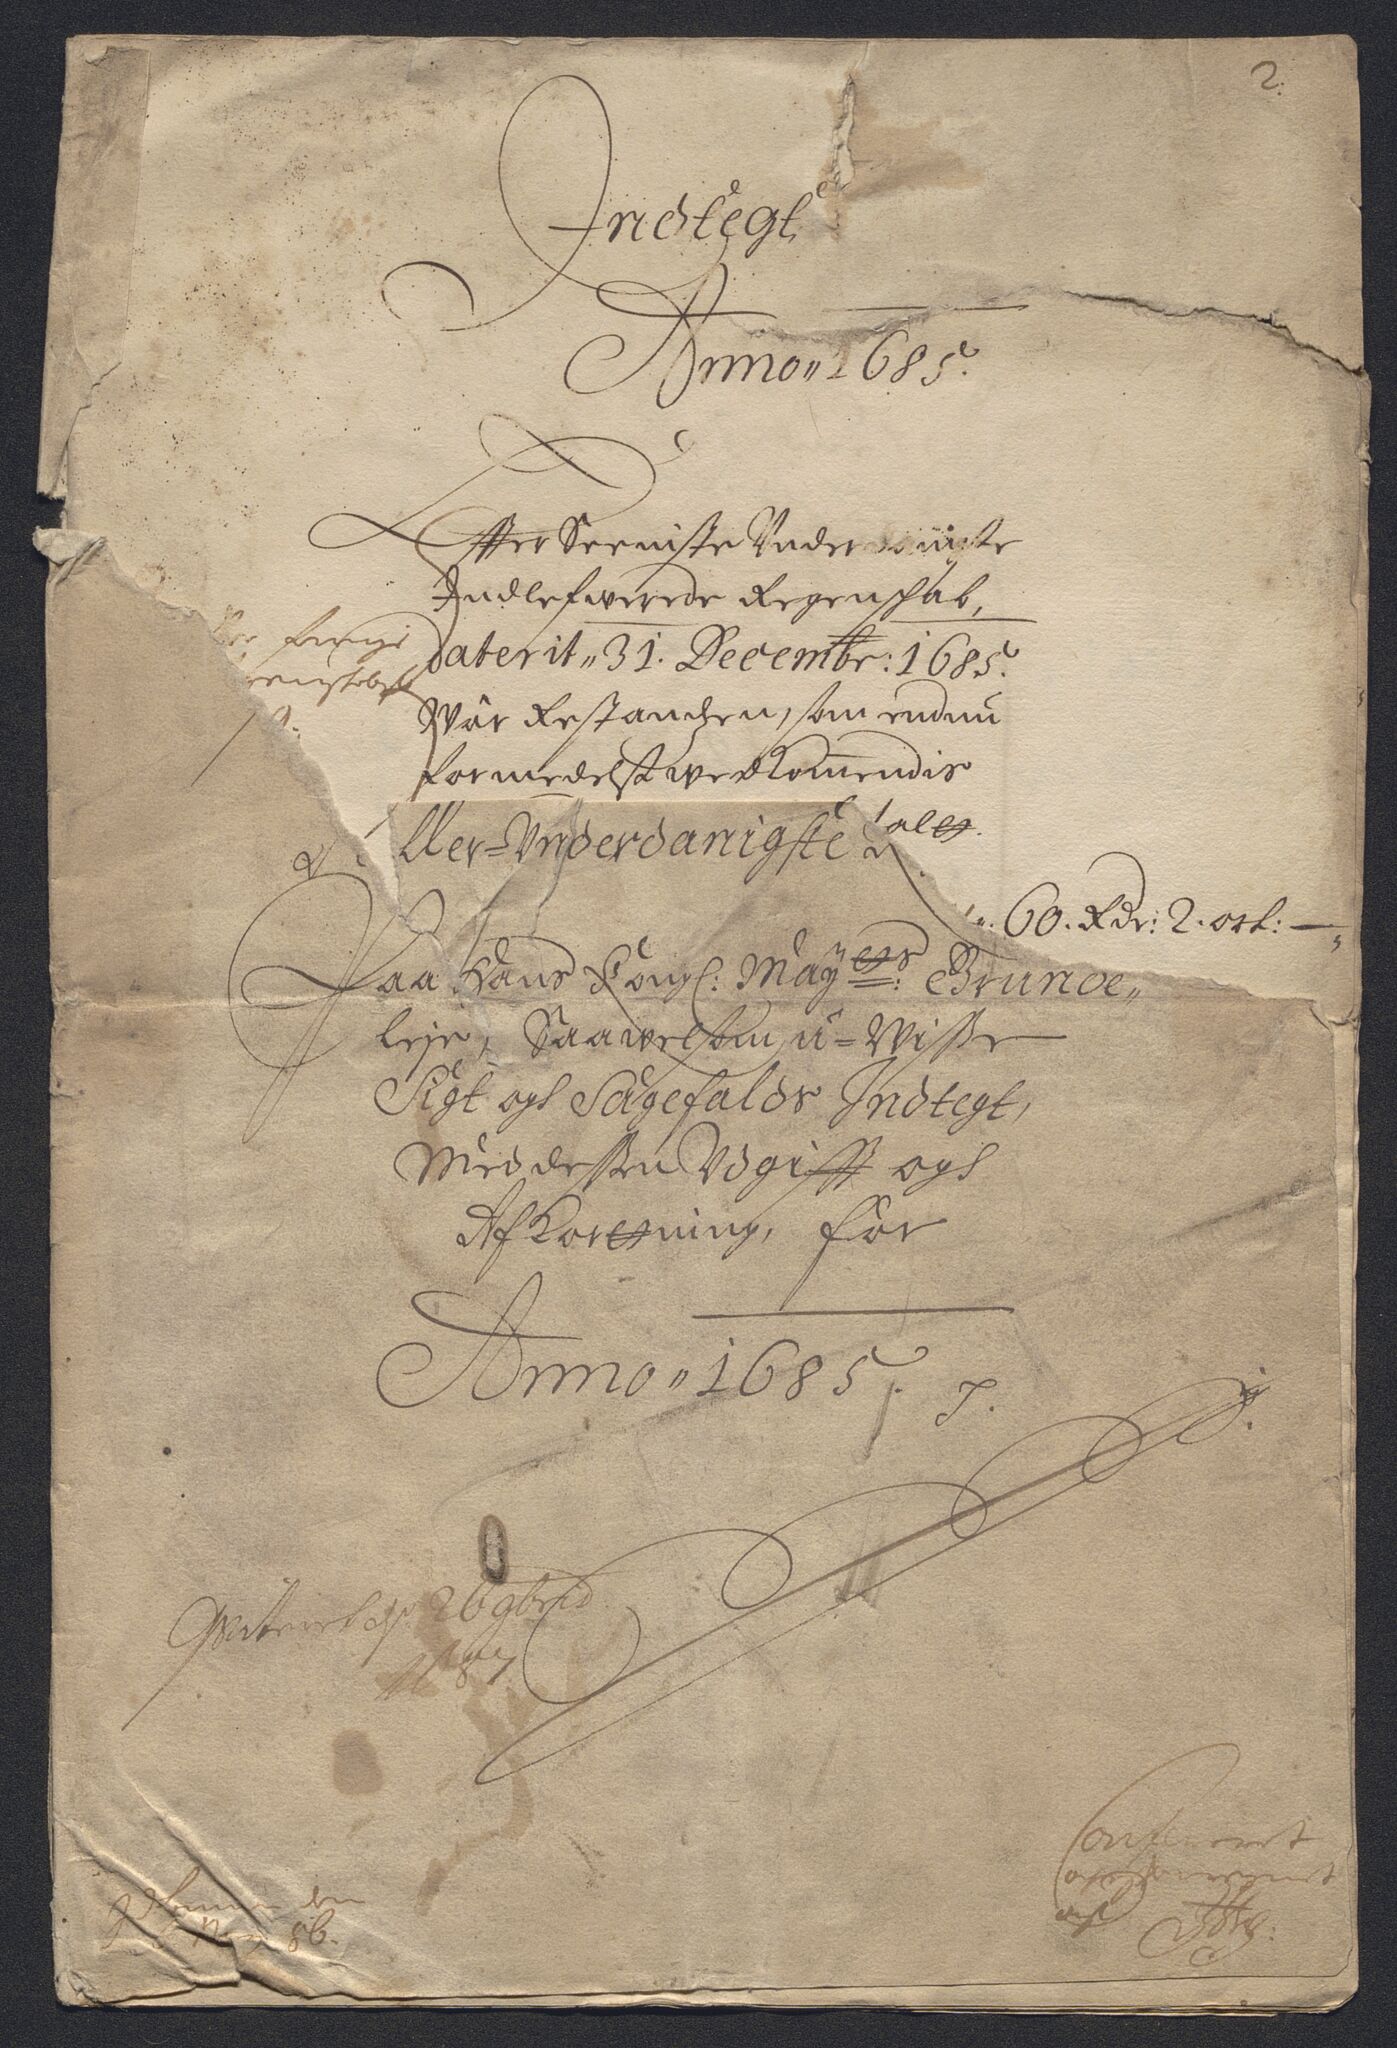 2.
Indtegt
Anno 1685.
Effter Seeniste Underdanigste
Indlefwerede Regenschab,
daterit 31. Decembr: 1685.
War Restandzen, som endnu
formedelst wedkommendis
Aller-Underdanigste
60. Rdr: 2. ort:
Paa Hans Kongl: Mayets: Grunde-
leje, Saawelsom u-Wisse
Sigt och Sagefalds Indtegt,
Med dessen Udgifft och
Afkortning, for
Anno 1685.
26 9brid
1687
den
86.